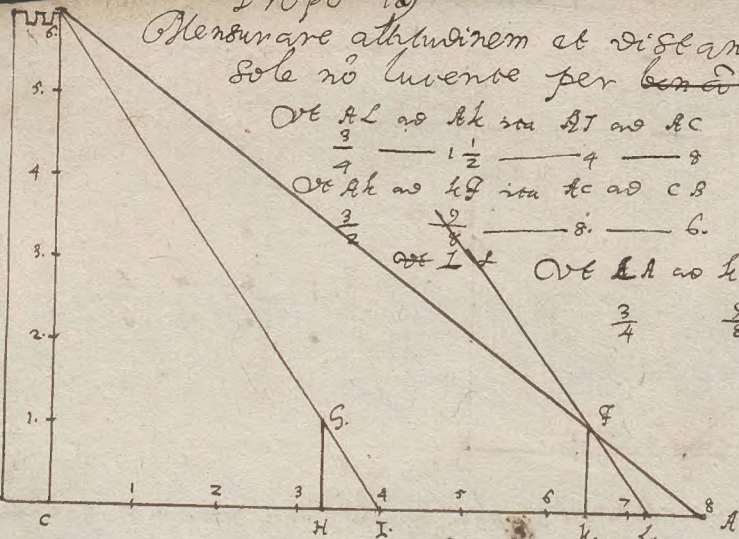 Propo
Mensurare altitudinem et distan
sole nō lucente per
Vt AL ad Ak ita AI ad AC
3/4 — 1 1/2 — 4 — 8
Vt Ak ad kF ita AC ad CB
3/2 9/8 — 8. — 6.
Vt I
Vt LA ad k
3/4 9/8
6.
5.
4
3.
2.
1.
G.
F
C 1 2 3 4 5 6 7 8 A
H I. k. L.